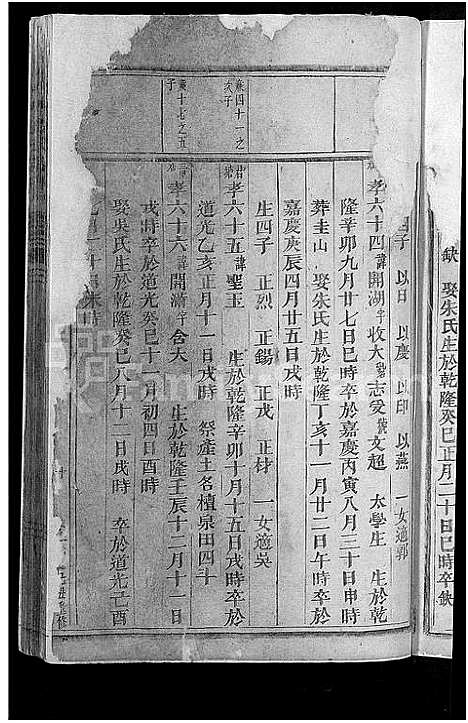 缺 娶朱氏生於乾隆癸巳正月二十日巳時卒缺
子 以日 以慶 以印 以燕 一女適郭
孝六十四諱開湖字收大號志爱號文超 太學生 生於乾
隆辛卯九月廿七日巳時卒於嘉慶丙寅八月三十日申時
葬圭山 娶朱氏生於乾隆丁亥十一月廿二日午時卒於
嘉慶庚辰四月廿五日戌時
生四子 正烈 正鍚 正戎 正材 一女適吴
兼四十一之
次子
孝六十五諱聖玉 生於乾隆辛卯十月十五日戌時卒於
道光乙亥正月十一日戌時 祭產土名檀泉田四斗
十七之五
子
孝六十六 開濟字含天 生於乾隆壬辰十二月十一日
戌時卒於道光癸巳十一月初四日酉時
娶吳氏生於乾隆癸巳八月十二日戌時 卒於道光己酉